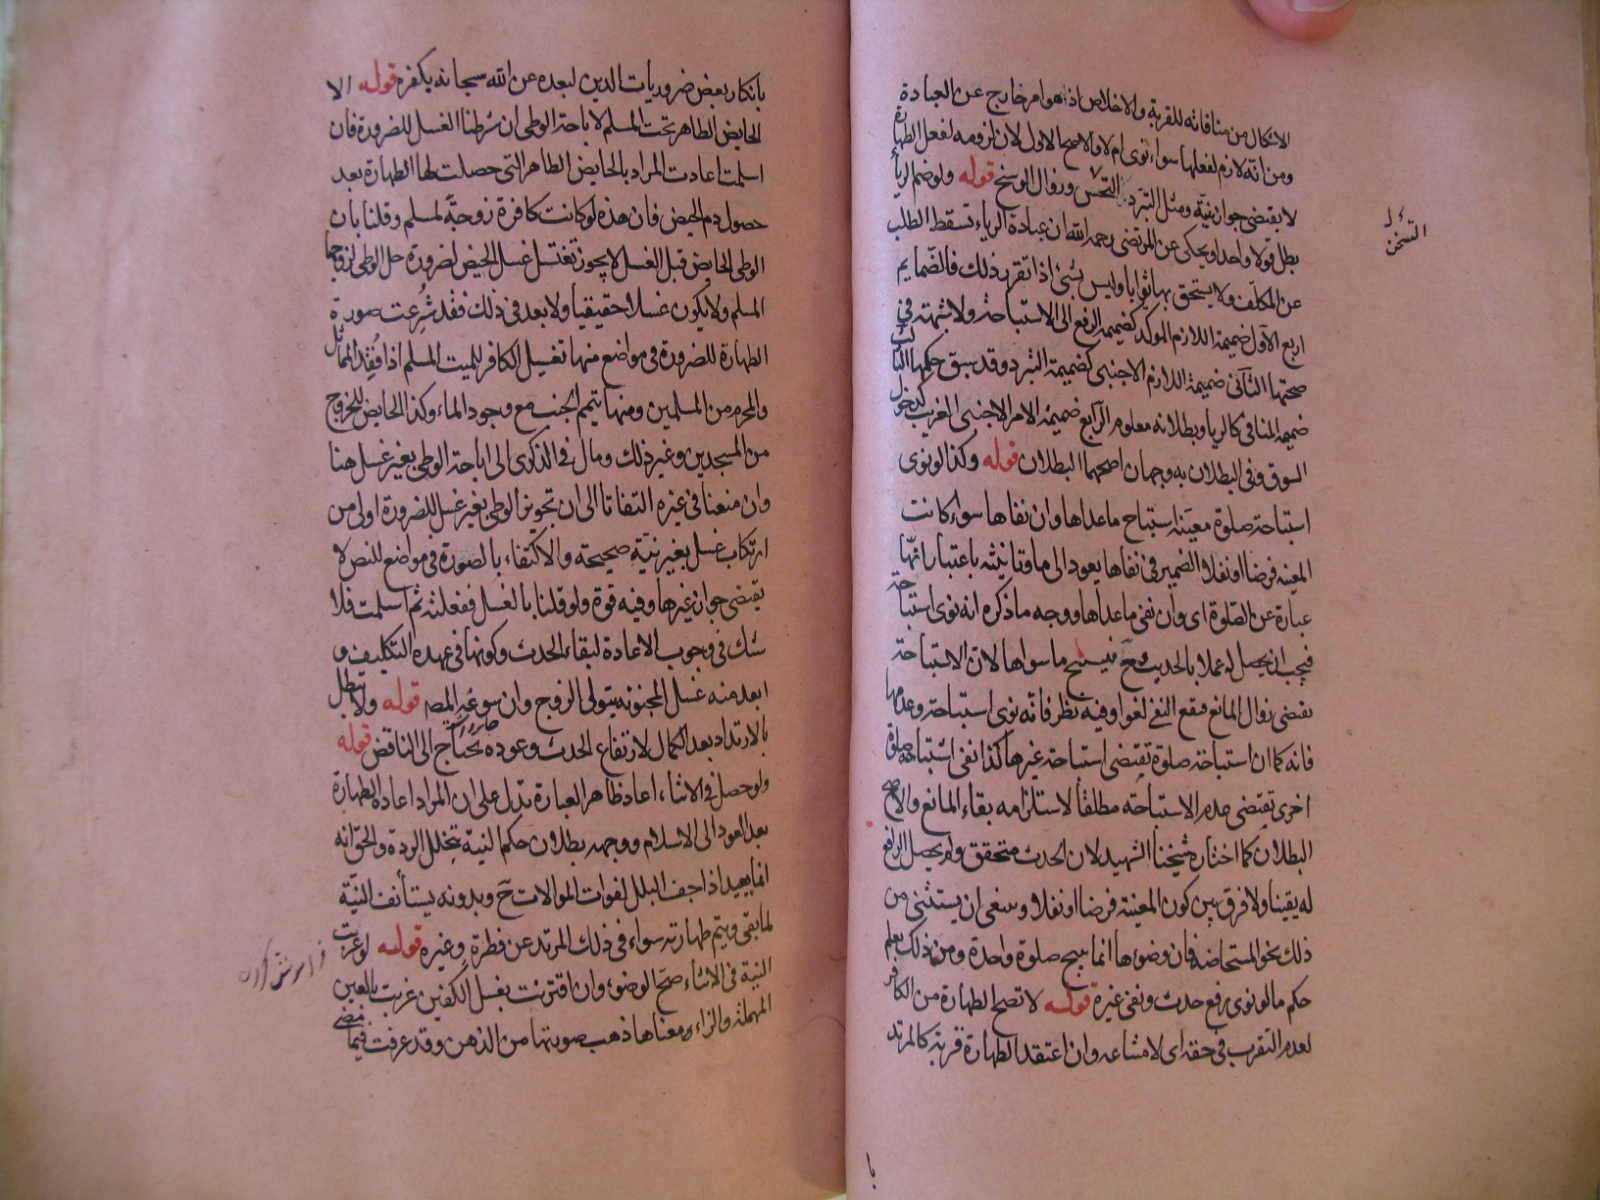 الاشكال من منافاته للقربة والاخلاص اذ هو امر خارج عن العبادة
ومن انه لازم لفعلها سواء نوى ام لا والاصح الاول لان لزومه لفعل الطهارة
لا يقتضى جواز نيته ومثل التبرد التحسن وزوال الوسخ قوله ولو ضم الرياء
بطل قولا واحدا ويحكى عن المرتضى رحمه الله ان عبادة الرياء تسقط الطلب
عن المكلف ولا يستحق بها ثوابا وليس بشئ اذا تقرر ذلك فالضمايم
اربع الاول ضميمة اللازم المولد كضميمة الرفع الى الاستباحة ولا شبهة في
صحتها الثانى ضميمة اللازم الاجنبى كضميمة التبرد وقد سبق حكمها الثالث
ضميمة المنافى كالريا وبطلانه معلوم الرابع ضميمة الامر الاجنبى الغريب كدخول
السوق وفى البطلان به وجهان اصحهما البطلان قوله وكذا لو نوى
استباحة صلوة معينة استباح ما عداها وان نفاها سواء كانت
المعينة فرضا او نفلا الضمير فى نفاها يعود الى ما وتانيثه باعتبار انها
عبارة عن الصلوة اى وان نفى ما عداها ووجه ما ذكره انه نوى استباحة
فيجب ان يحصل له عملا بالحديث وح فيستبيح ما سواها لان الاستباحة
تقتضى زوال المانع فيقع النفى لغوا وفيه نظر فانه نوى استباحة وعدمها
فانه كما ان استباحة صلوة تقتضى استباحة غيرها كذا نفى استباحة صلوة
اخرى تقتضى عدم الاستباحة مطلقا لاستلزامه بقاء المانع والاصح
البطلان كما اختاره شيخنا الشهيد لان الحدث متحقق ولم يحصل الرافع
له يقينا ولا فرق بين كون المعينة فرضا او نفلا وينبغى ان يستثنى من
ذلك نحو المستحاضة فان وضوءها انما يبيح صلوة واحدة ومن ذلك يعلم
حكم ما لو نوى رفع حدث ونفى غيره قوله لا تصح الطهارة من الكافر
لعدم التقرب فى حقه اى لامتناعه وان اعتقد الطهارة قربة كالمرتد
التسخن
بانكار بعض ضروريات الدين لبعده عن الله سبحانه بكفره قوله الا
الحايض الطاهر تحت المسلم لاباحة الوطى ان شرطنا الغسل للضرورة فان
اسلمت اعادت المراد بالحايض الطاهر التى حصلت لها الطهارة بعد
حصول دم الحيض فان هذه لو كانت كافرة زوجة لمسلم وقلنا بان
الوطى للحايض قبل الغسل لا يجوز تغتسل غسل الحيض لضرورة حل الوطى لزوجها
المسلم ولا يكون غسلا حقيقيا ولا بعد فى ذلك فقد شرعت صورة
الطهارة للضرورة فى مواضع منها تغسيل الكافر للميت المسلم اذا فقد المماثل
والمحرم من المسلمين ومنها تيمم الجنب مع وجود الماء وكذا الحايض للخروج
من المسجدين وغير ذلك ومال فى الذكرى الى اباحة الوطى بغير غسل هنا
وان منعنا فى غيره التفاتا الى ان تجويز الوطى بغير غسل للضرورة اولى من
ارتكاب غسل بغير نية صحيحة والاكتفاء بالصورة فى مواضع للنص لا
يقتضى جواز غيرها وفيه قوة ولو قلنا بالغسل ففعلته ثم اسلمت فلا
شك فى وجوب الاعادة لبقاء الحدث وكونها فى عهدة التكليف و
ابعد منه غسل المجنونة يتولى الزوج وان سوغه المصـ قوله ولا يبطل
بالارتداد بعد الكمال لارتفاع الحدث وعوده يحتاج الى الناقض قوله
ولو حصل فى الاثناء اعاد ظاهر العبارة تدل على ان المراد اعادة الطهارة
بعد العود الى الاسلام ووجهه بطلان حكم النية بتخلل الردة والحق انه
انما يعيد اذا جف البلل لفوات الموالات ح وبدونه يستأنف النية
لما بقى ويتم طهارته سواء فى ذلك المرتد عن فطرة وغيره قوله لو عزبت
النية فى الاثناء صح الوضوء وان اقترنت بغسل الكفين عزبت بالعين
المهملة والزاء معناها ذهب صورتها من الذهن وقد عرفت فيما مضى